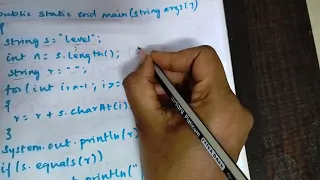 public static void main(String args[])
{
String s = "level";
int n = s.length();
String r = "";
for (int i = n-1; i >=
{
r = r + s.charAt(i)
}
System.out.println(r)
if (s.equals(r))
println("